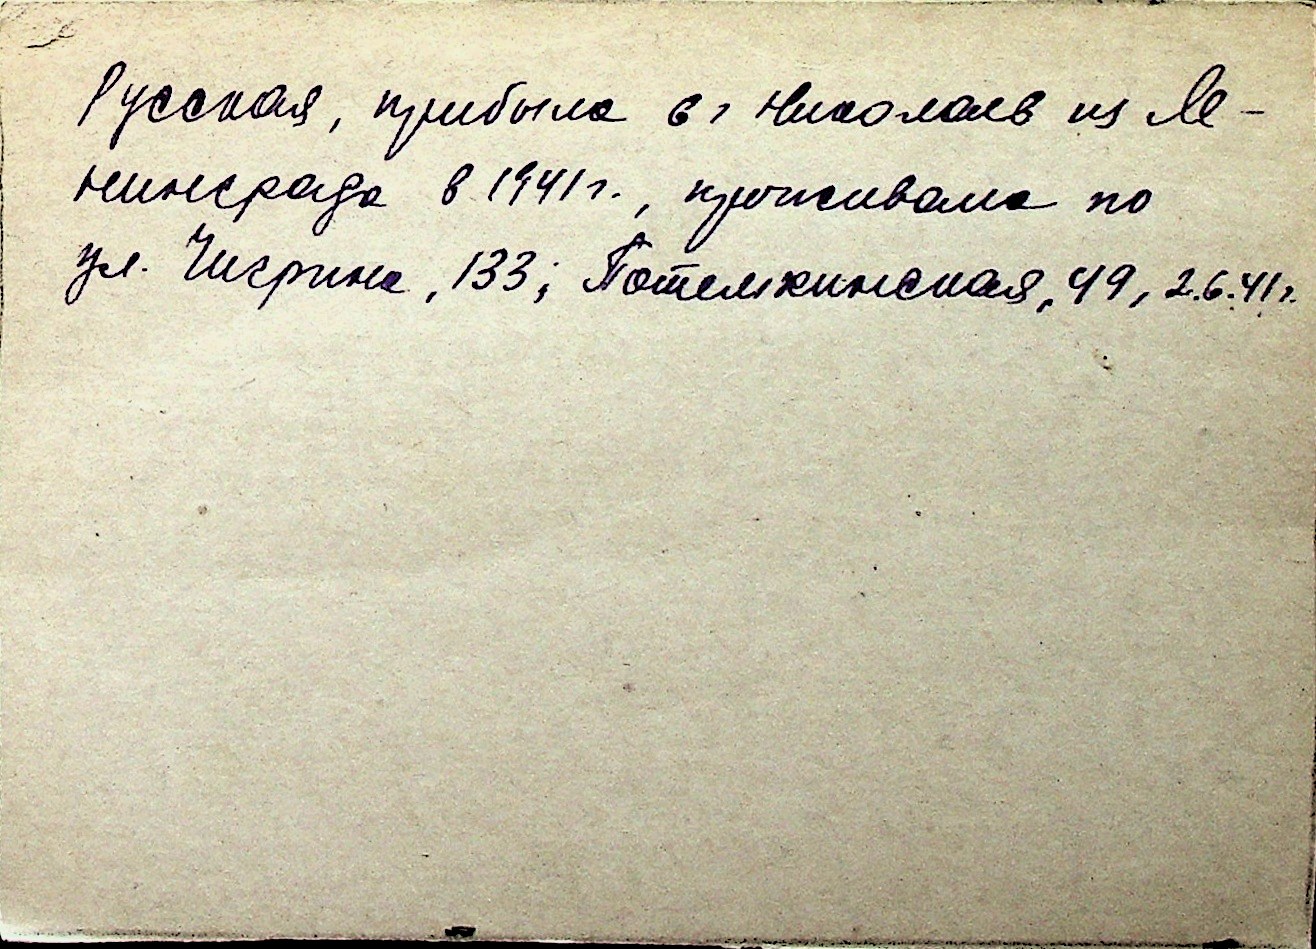 Русская, прибыла в г Николаев из Ле-
нинграда в 1941 г., проживала по
ул. Чигрина, 133; Потемкинская, 49, 2.6.41 г.